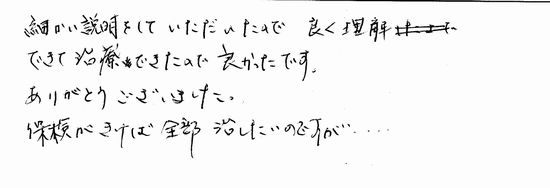 細かい説明をしていただいたので 良く理解
できて治療もできたので良かったです。
ありがとうございました。
保検がきけば全部治したいのですが.....